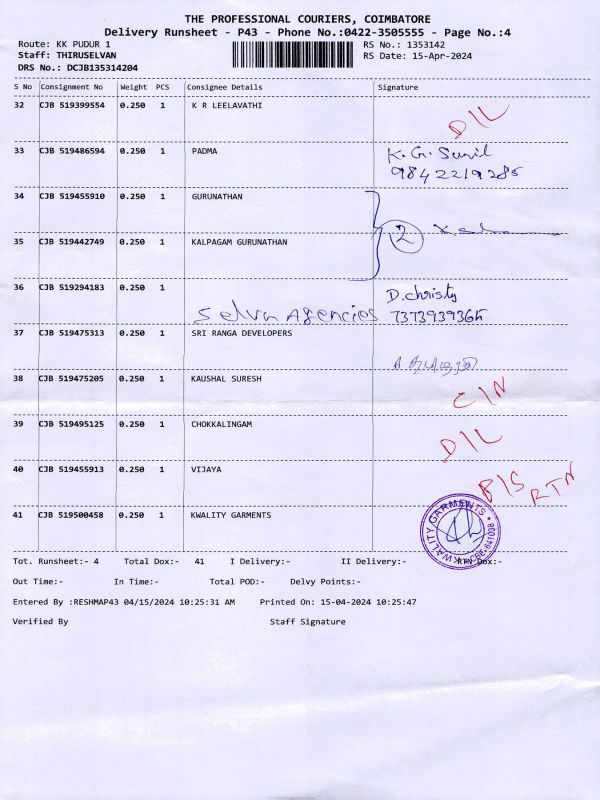 THE PROFESSIONAL COURIERS, COIMBATORE
Delivery Runsheet - P43 - Phone No.:0422-3505555 - Page No.:4
Route: KK PUDUR 1 RS No.: 1353142
Staff: THIRUSELVAN RS Date: 15-Apr-2024
DRS No.: DCJB135314204
S No Consignment No Weight PCS Consignee Details Signature
32 CJB 519399554 0.250 1 K R LEELAVATHI
D/L
33 CJB 519486594 0.250 1 PADMA K.G. Sunil
9842219285
34 CJB 519455910 0.250 1 GURUNATHAN
2
35 CJB 519442749 0.250 1 KALPAGAM GURUNATHAN
36 CJB 519294183 0.250 1 D.christy
Selva Agencies 7373939365
37 CJB 519475313 0.250 1 SRI RANGA DEVELOPERS
38 CJB 519475205 0.250 1 KAUSHAL SURESH C/N
39 CJB 519495125 0.250 1 CHOKKALINGAM D/L
40 CJB 519455913 0.250 1 VIJAYA P/S RTN
41 CJB 519500458 0.250 1 KWALITY GARMENTS
KWALITY GARMENTS * CBE-641038 *
Tot. Runsheet:- 4 Total Dox:- 41 I Delivery:- II Delivery:- RTN Dox:-
Out Time:- In Time:- Total POD:- Delvy Points:-
Entered By :RESHMAP43 04/15/2024 10:25:31 AM Printed On: 15-04-2024 10:25:47
Verified By Staff Signature